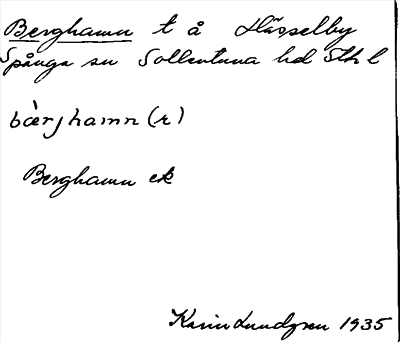 Berghamn t å Hässelby
Spånga sn Sollentuna hd Sthl
bæ̀rjhamn (r)
Berghamn ek
Karin Lundgren 1935